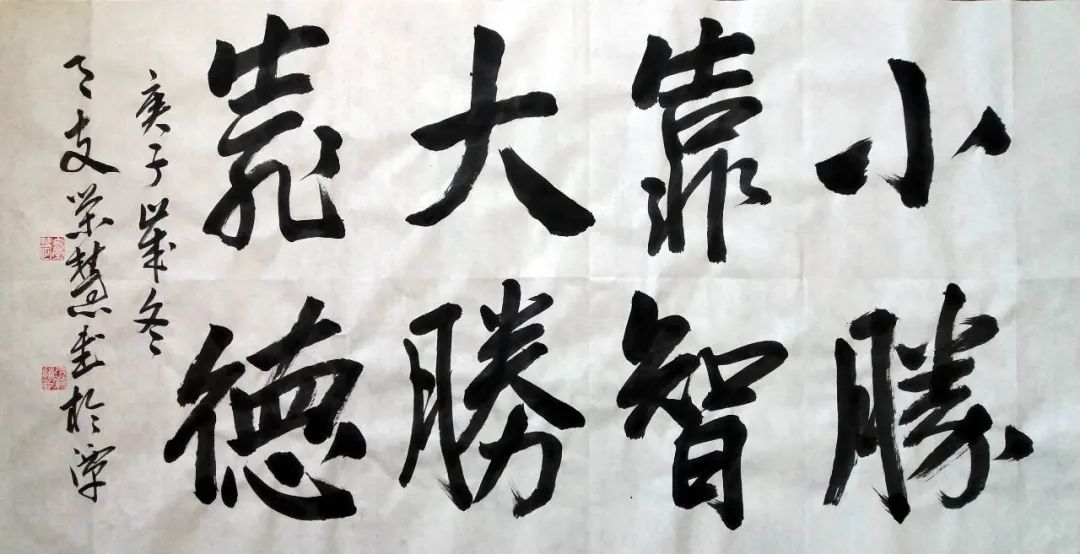 小勝
靠智
大勝
靠德
庚子歲冬
支榮慧書於潭